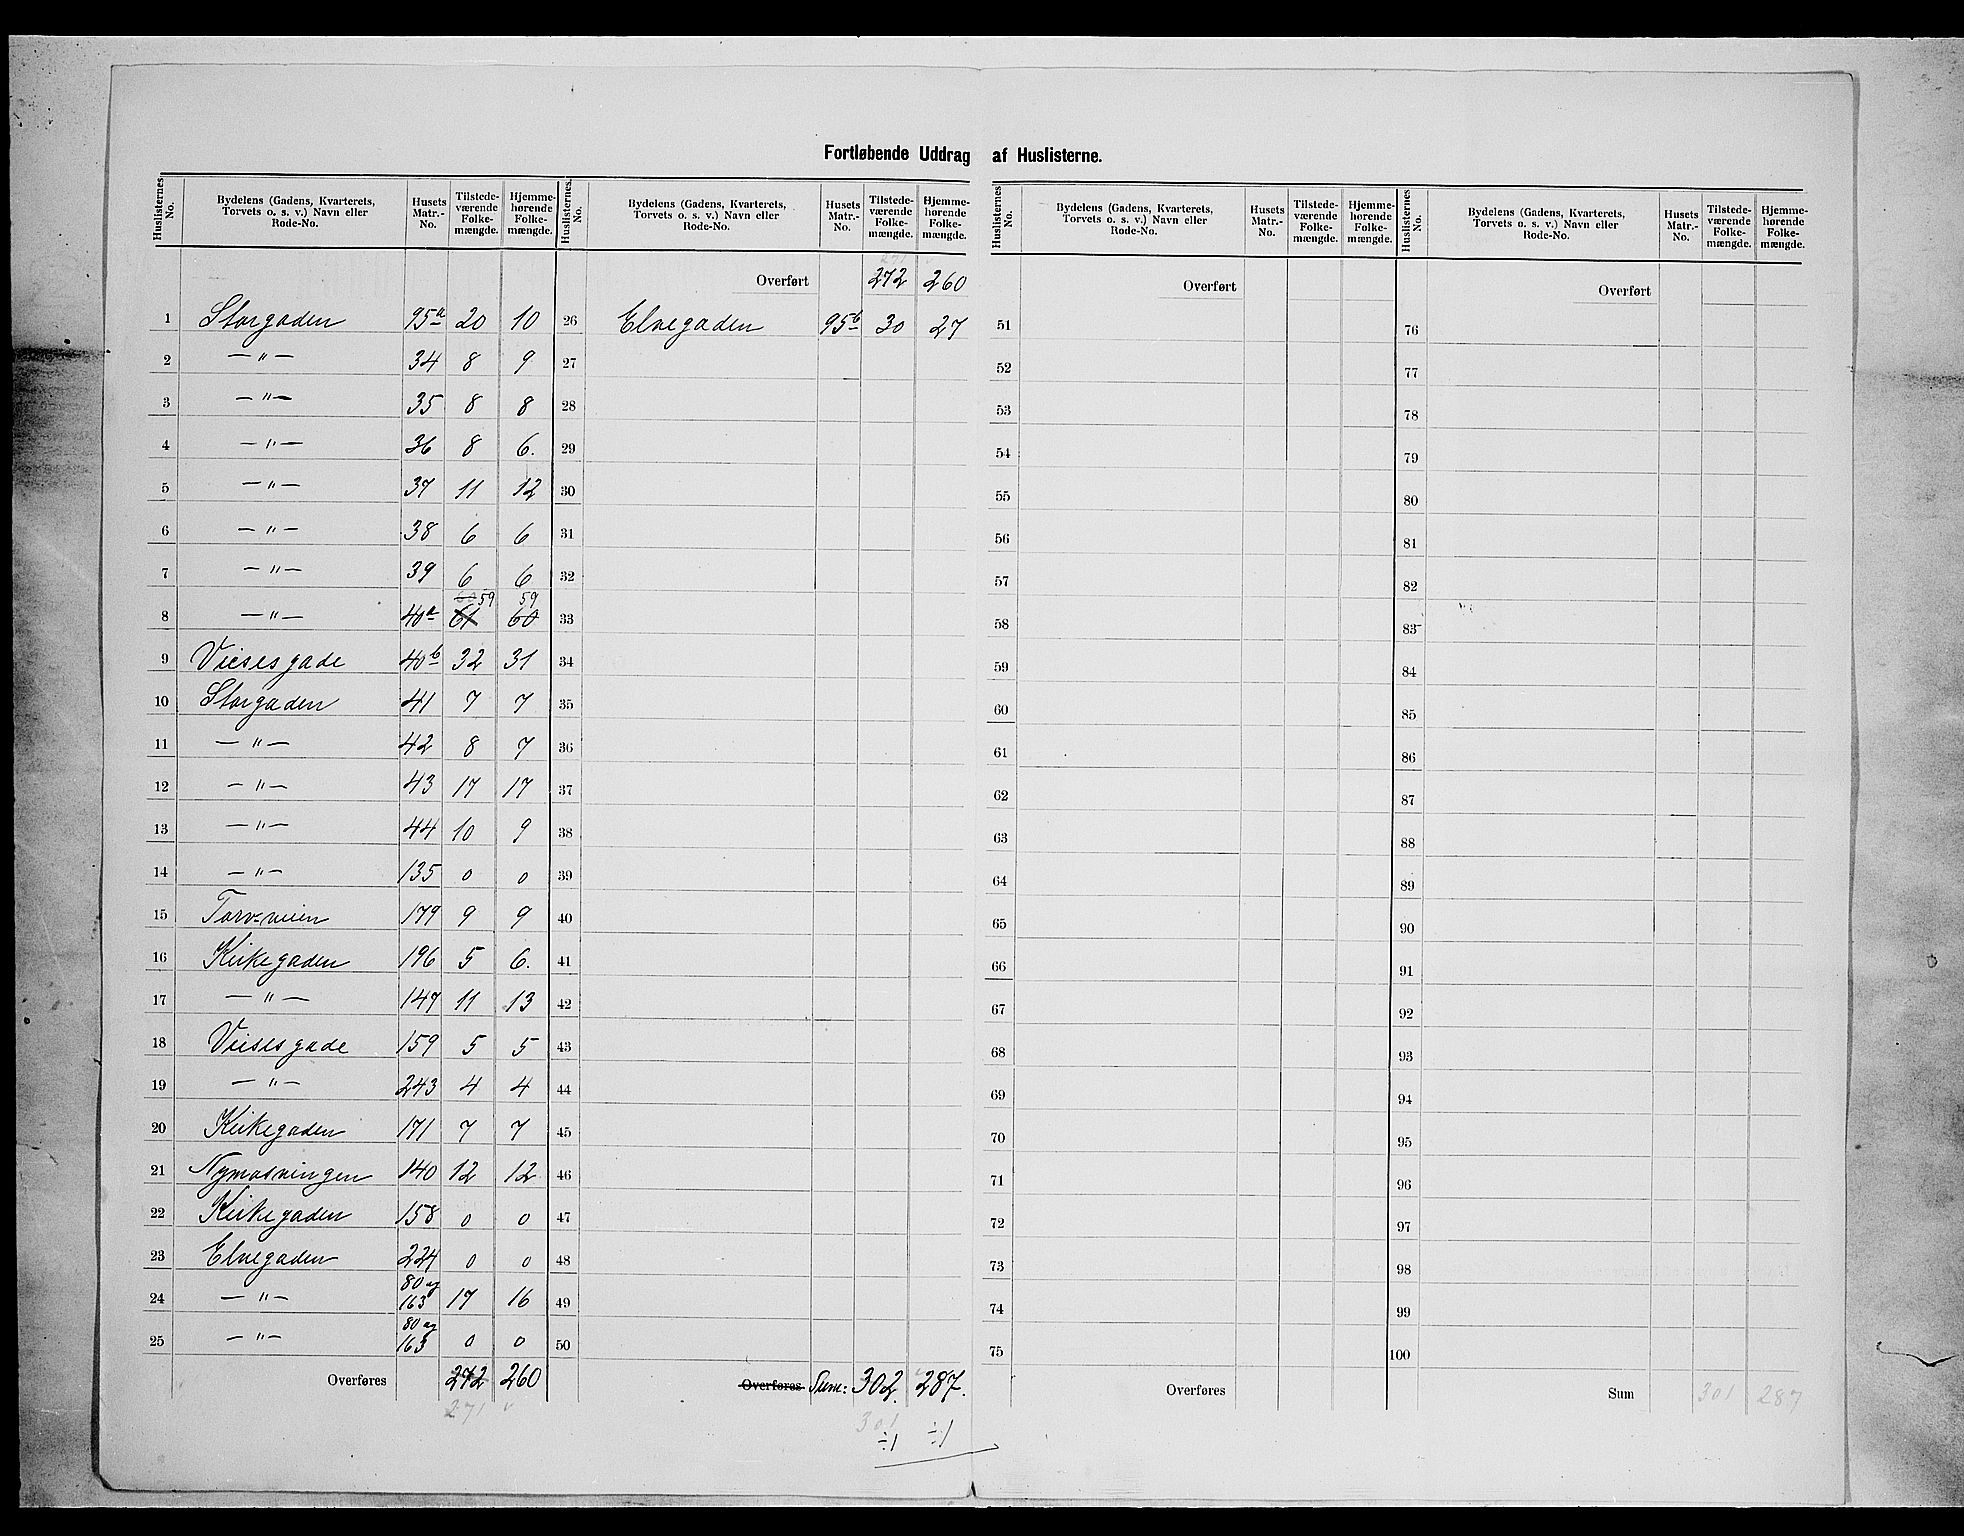 Fortløbende Uddrag af Huslisterne.
Huslisternes No. Bydelens (Gadens, Kvarterets, Torvets o. s. v.) Navn eller Rode-No. Husets Matr.-No. Tilstedeværende Folkemængde. Hjemmehørende Folkemængde.
1 Storgaden 95a 20 10
2 — " — 34 8 9
3 — " — 35 8 8
4 — " — 36 8 6.
5 — " — 37 11 12
6 — " — 38 6 6
7 — " — 39 6 6
59 59
8 — " — 40a 61 60
9 Viesesgade 40b 32 31
10 Storgaden 41 7 7
11 — " — 42 8 7
12 — " — 43 17 17
13 — " — 44 10 9
14 — " — 135 0 0
15 179 9 9
16 Kirkegaden 196 5 6.
17 — " — 147 11 13
18 Viesesgade 159 5 5
19 — " — 243 4 4
20 Kirkegaden 171 7 7
21 140 12 12
22 Kirkegaden 158 0 0
23 Elvegaden 224 0 0
24 — " — 80 og 163 17 16
25 — " — 80 og 163 0 0
Overføres 272 260
271
Huslisternes No. Bydelens (Gadens, Kvarterets, Torvets o. s. v.) Navn eller Rode-No. Husets Matr.-No. Tilstedeværende Folkemængde. Hjemmehørende Folkemængde.
271
Overført 272 260
26 Elvegaden 95b 30 27
27
28
29
30
31
32
33
34
35
36
37
38
39
40
41
42
43
44
45
46
47
48
49
50
Overføres Sum: 302. 287.
301
÷1 ÷1
Huslisternes No. Bydelens (Gadens, Kvarterets, Torvets o. s. v.) Navn eller Rode-No. Husets Matr.-No. Tilstedeværende Folkemængde. Hjemmehørende Folkemængde.
Overført
51
52
53
54
55
56
57
58
59
60
61
62
63
64
65
66
67
68
69
70
71
72
73
74
75
Overføres
Huslisternes No. Bydelens (Gadens, Kvarterets, Torvets o. s. v.) Navn eller Rode-No. Husets Matr.-No. Tilstedeværende Folkemængde. Hjemmehørende Folkemængde.
Overført
76
77
78
79
80
81
82
83
84
85
86
87
88
89
90
91
92
93
94
95
96
97
98
99
100
Sum 301 287